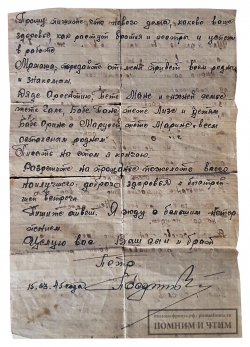 Прошу пишите, что нового дома, каково ваше
здоровье, как растут братья и сестры и успехи
в работе.
Мамаша, передайте от меня привет всем родным
и знакомым.
Дяде Оресттию, тете Мане и ихней семье
тоже Сане, Бабе Мане тоже Лизе и детям,
Бабе Орине и Марусе, тоже Марине и всем
остальным родным.
Писать на этом я кончаю.
Разрешите на прощание пожелать вам
наилучшего, доброго здоровья и быстрей
шей встречи.
Пишите ответ. Я жду с большим нетер
пением.
Целую вас Ваш сын и брат
Петр
15.03.45 года
ПОМНИМ И ЧТИМ